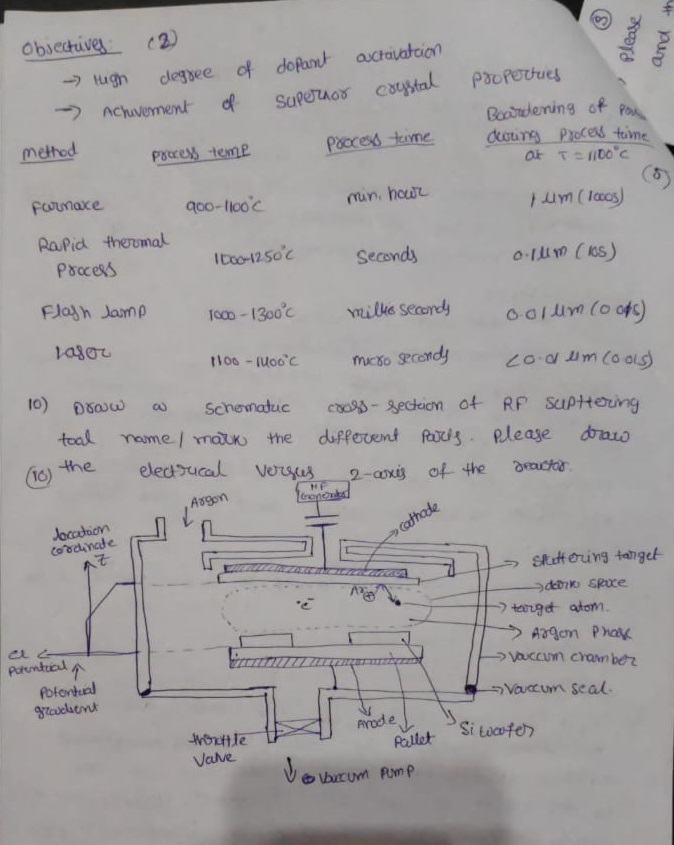 Objectives: (2)
→ High degree of dopant activation
→ Achivement of superior crystal properties
Method process temp process time Boardening of
during process time
at T = 1100°C
(5)
Furnace 900-1100°C min. hour 1 µm (1000s)
Rapid thermal
Process 1000-1250°C Seconds 0.1µm (10s)
Flash lamp 1000-1300°C millis seconds 0.01 µm
Laser 1100-1400°C micro seconds <0.01 µm (0.01s)
10) Draw a schematic cross-section of RF supttering
tool name/mark the different parts. Please draw
(10) the electrical versus z-axis of the reactor.
HF
Generator
Argon
cathode
location
coordinate
Z
sputtering target
dark space
Ar⊕
e⁻
target atom.
Argon Phase
el
Potential
vaccum chamber
Potential
gradient
Vaccum seal.
Anode
Si wafer
Pallet
throttle
Valve
Vaccum pump
(3)
Please
and